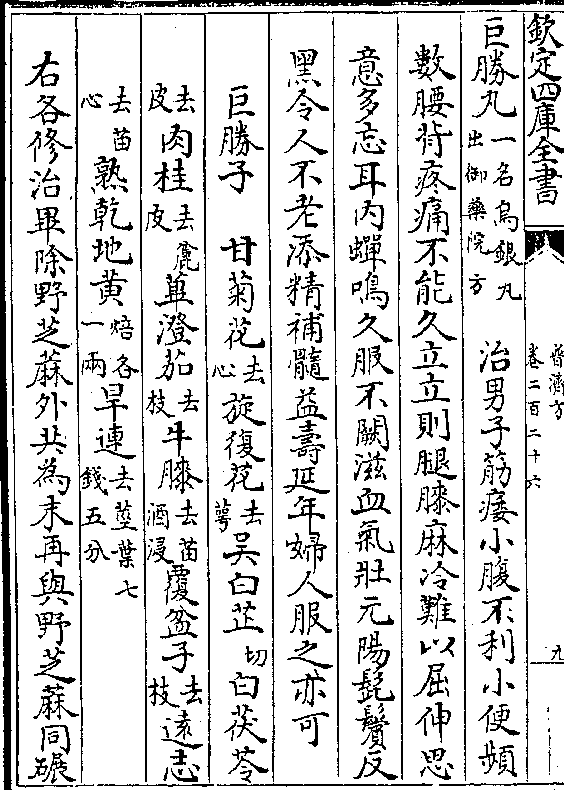 欽定四庫全書
普濟方
卷二百二十六
九
巨勝丸一名烏銀丸出御藥院方 治男子筋痿小腹不利小便頻
數腰背疼痛不能久立立則腿膝麻冷難以屈伸思
意多忘耳內蟬鳴久服不闕滋血氣壯元陽髭鬢反
黑令人不老添精補髓益壽延年婦人服之亦可
巨勝子 甘菊花去心旋復花去萼吳白芷切白茯苓
去皮肉桂去麄皮蓽澄茄去枝牛膝去苗酒浸覆盆子去枝遠志
去苗心熟乾地黄焙各一兩旱連去莖葉七錢五分
右各修治畢除野芝蔴外共為末再與野芝蔴同碾